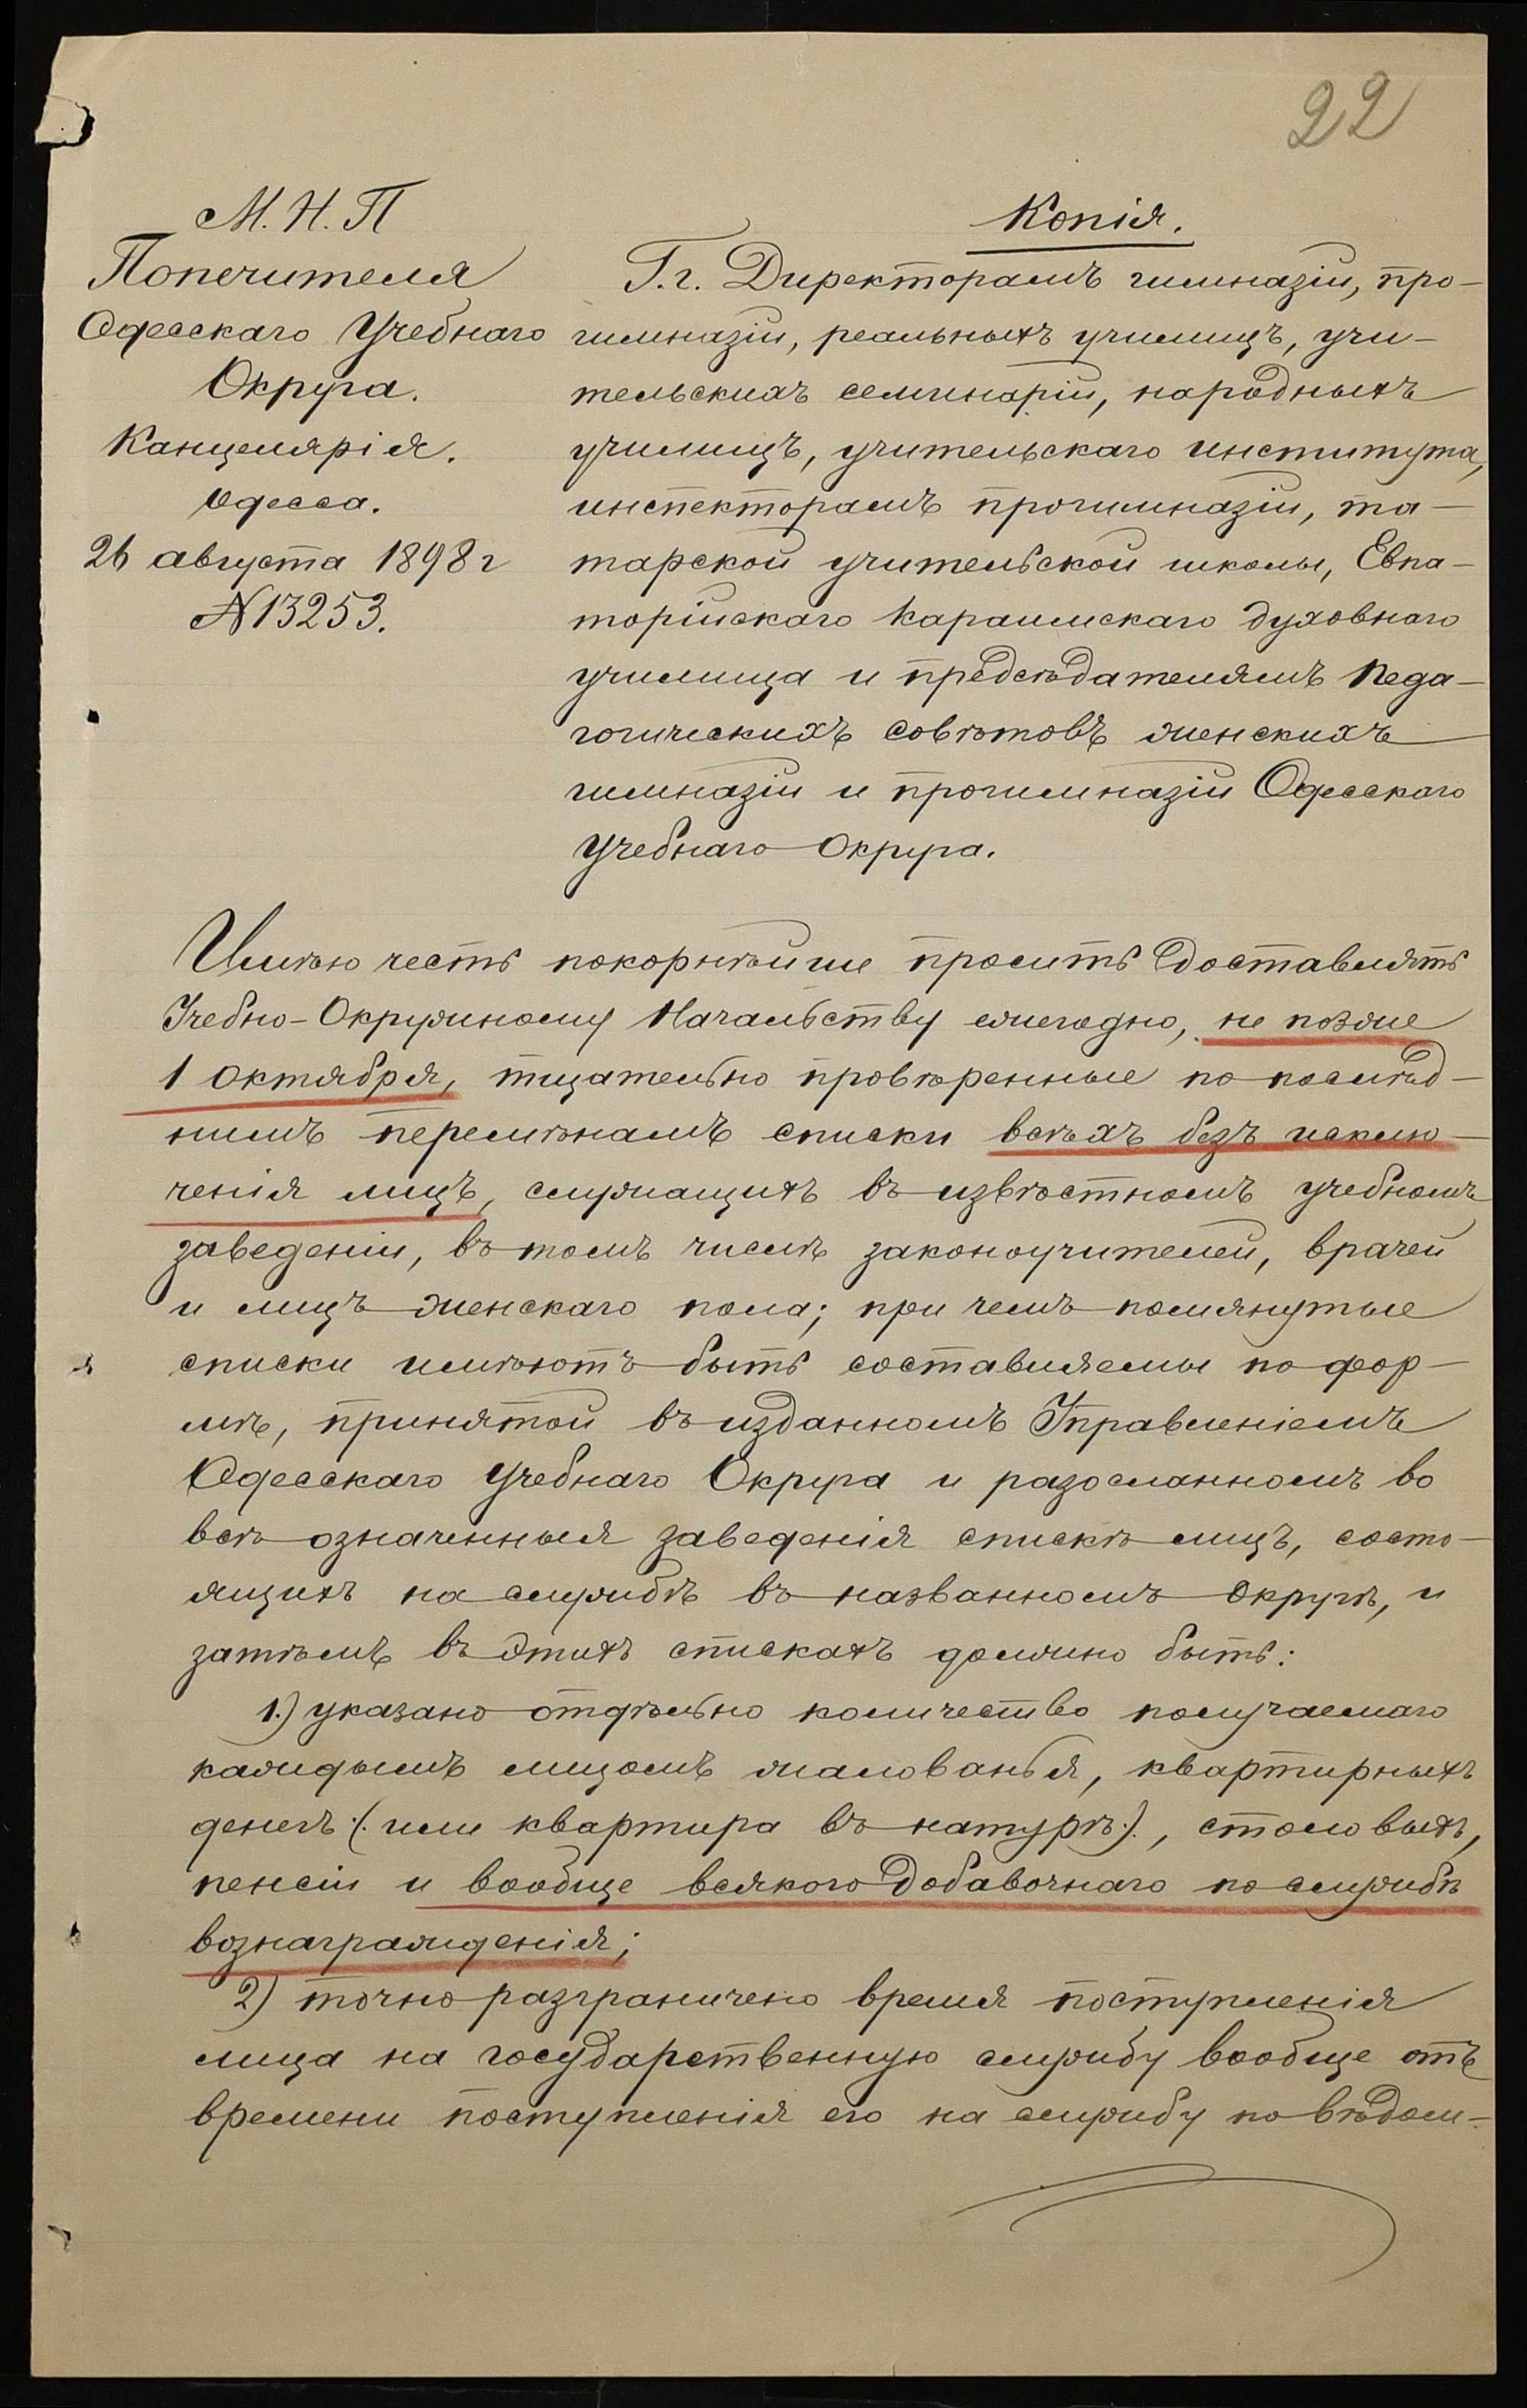 22
М. Н. П
Попечителя
Одесскаго Учебнаго
Округа.
Канцелярія.
Одесса.
26 августа 1898 г
№ 13253.
Копія.
Г.г. Директорамъ гимназіи, про-
гимназіи, реальныхъ училищъ, учи-
тельскихъ семинаріи, народныхъ
училищъ, учительскаго института,
инспекторамъ прогимназіи, та-
тарской учительской школы, Евпа-
торійскаго Караимскаго духовнаго
училища и предсѣдателямъ Педа-
гогическихъ совѣтовъ женскихъ
гимназіи и прогимназіи Одесскаго
Учебнаго Округа.
Имѣю честь покорнѣйше просить доставлять
Учебно-Окружному Начальству ежегодно, не позже
1 Октября, тщательно провѣренные по послѣд-
нимъ перемѣнамъ списки всѣхъ безъ исклю-
ченія лицъ, служащихъ въ извѣстномъ учебномъ
заведеніи, въ томъ числѣ законоучителей, врачей
и лицъ женскаго пола; при чемъ помянутые
списки имѣютъ быть составляемы по фор-
мѣ, принятой въ изданномъ Управленіемъ
Одесскаго Учебнаго Округа и разосланномъ во
всѣ означенныя заведенія спискѣ лицъ, состо-
ящихъ на службѣ въ названномъ Округѣ, и
затѣмъ въ этихъ спискахъ должно быть:
1.) указано отдѣльно количество получаемаго
каждымъ лицомъ жалованья, квартирныхъ
денегъ (: или квартира въ натурѣ :), столовыхъ,
пенсіи и вообще всякого добавочнаго по службѣ
вознагражденія;
2) точно разграничено время поступленія
лица на государственную службу вообще отъ
времени поступленія его на службу по вѣдом-